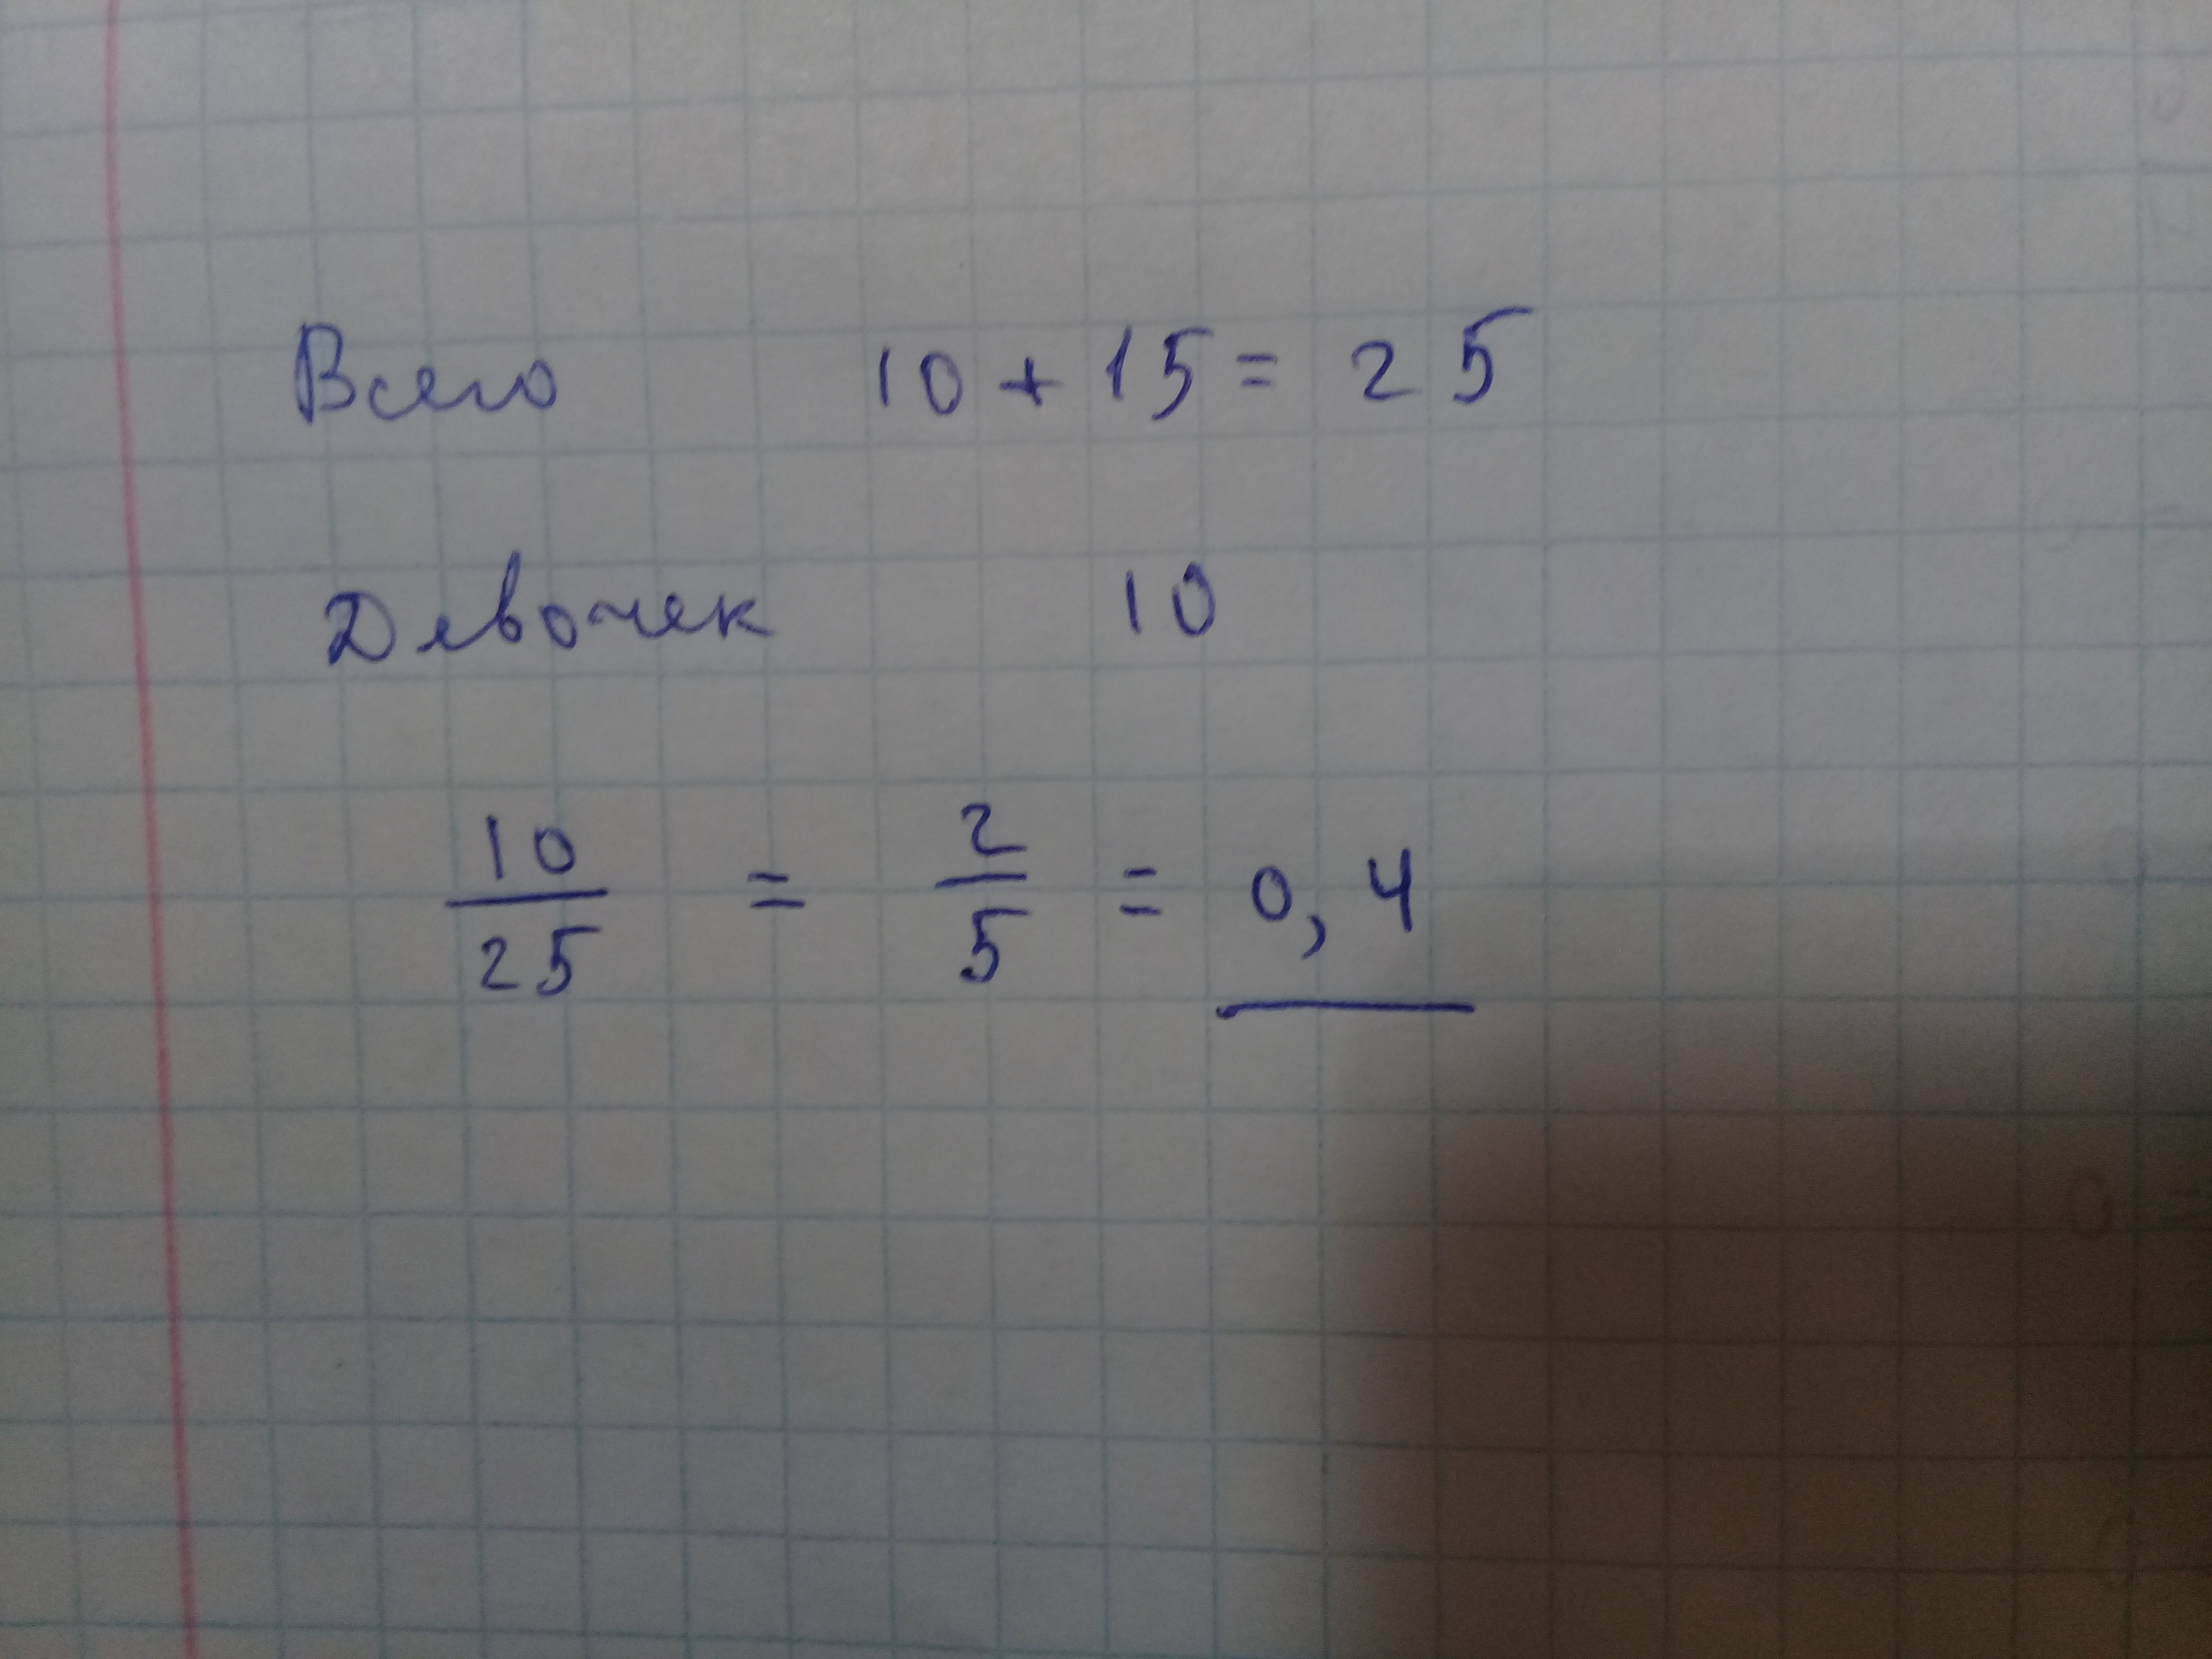 Всего 10 + 15 = 25
Девочек 10
10/25 = 2/5 = 0,4